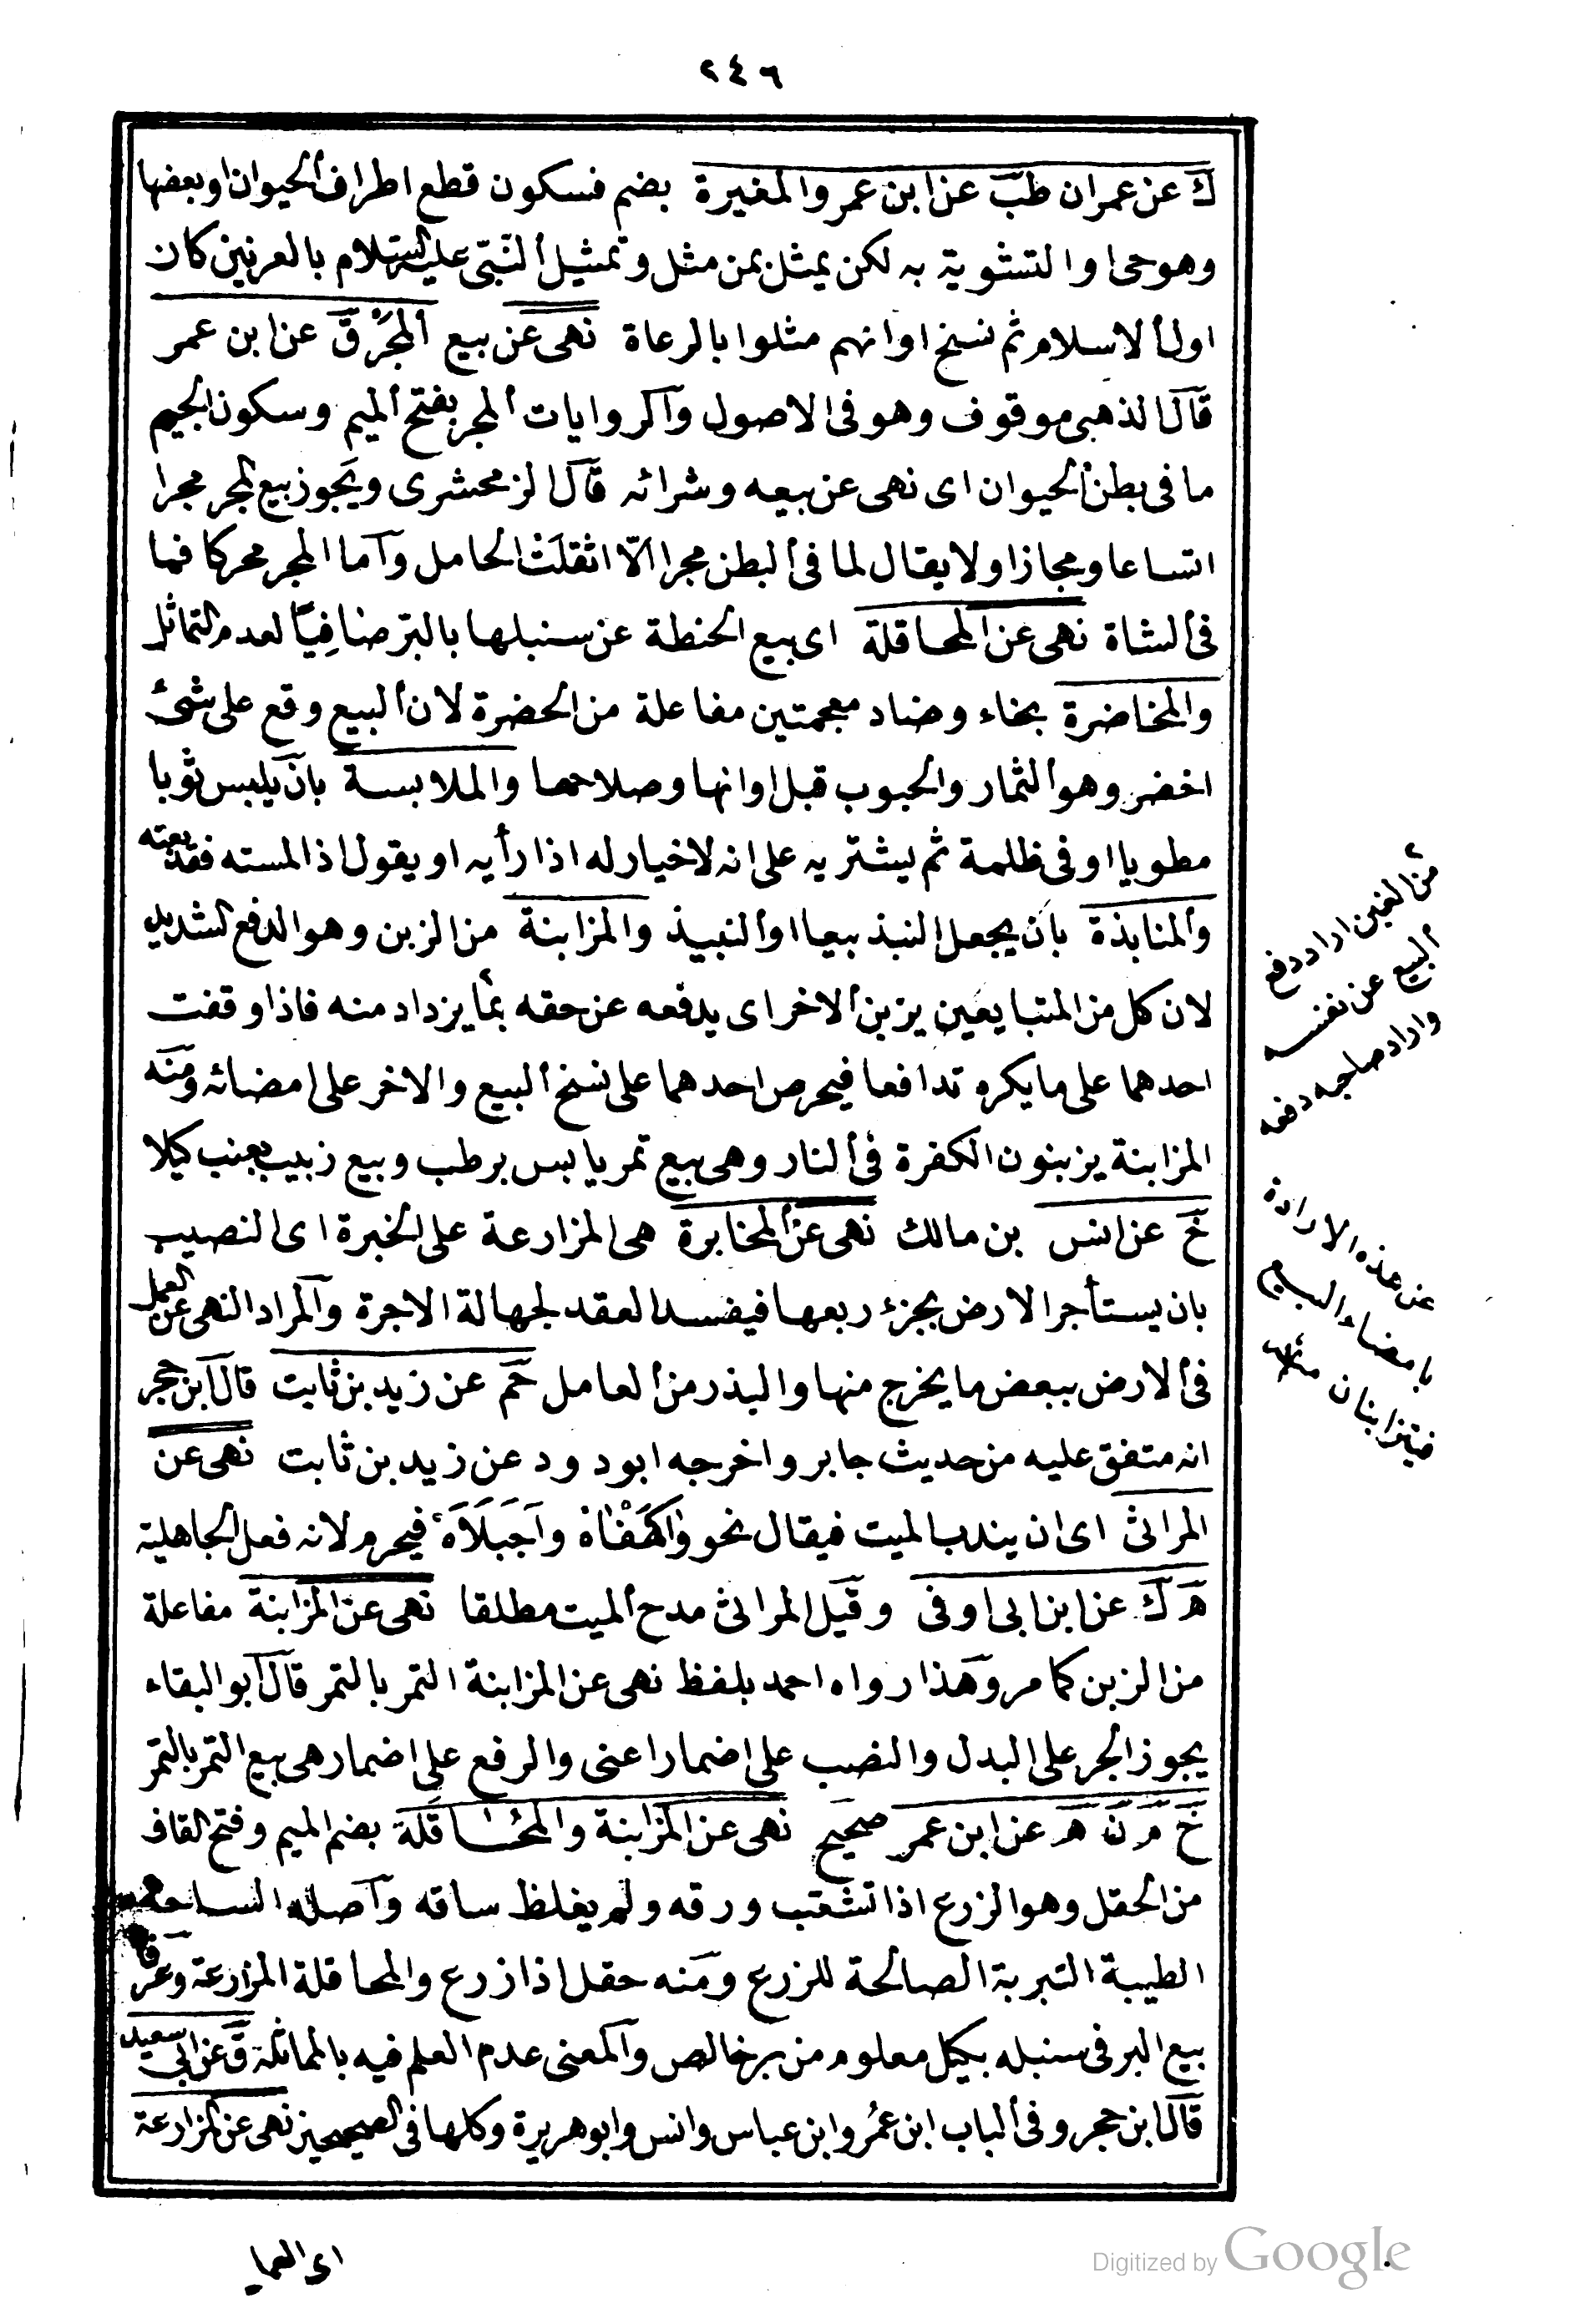 ٢٤٦
ك عن عمران طب عن ابن عمر والمغيرة بضم فسكون قطع اطراف الحيوان او بعضها
وهو حى او التشوية به لكن يمثل بمن مثل وتمثيل النبى عليه السلام بالعرنيين كان
اول الاسلام ثم نسخ او انهم مثلوا بالرعاة نهى عن بيع المجر ق عن ابن عمر
قال الذهبى موقوف وهو فى الاصول واكر وايات المجر بفتح الميم وسكون الجيم
ما فى بطن الحيوان اى نهى عن بيعه وشرائه قال الزمحشرى ويجوز بيع المجر مجرا
اتساعا ومجازا ولا يقال لما فى البطن مجرا الّا اثقلت الحامل واما المجر محركا فما
فى الشاة نهى عن المحاقلة اى بيع الحنطة عن سنبلها بالبر صافيا لعدم التماثل
والمخاضرة بخاء وضاد معجمتين مفاعلة من الحضرة لان البيع وقع على شئ
اخضر وهو الثمار والحبوب قبل اوانها وصلاحها والملابسة بان يلبس ثوبا
مطويا او فى ظلمة ثم يشتريه على انه لاخيار له اذا رأيه او يقول اذا لمسته فقد بعته
والمنابذة بان يجعل النبذ بيعا او النبيذ والمزابنة من الزبن وهو الدفع الشديد
لان كل من المتبايعين يزبن الاخر اى يدفعه عن حقه بما يزداد منه فاذا وقفت
احدهما على ما يكره تدافعا فيحرص احدهما على نسخ البيع والاخر على امضائه ومنه
المزابنة يزبنون الكفرة فى النار وهى بيع تمر يابس برطب وبيع زبيب بعنب كيلا
خ عن انس بن مالك نهى عن المخابرة هى المزارعة على الخبرة اى النصيب
بان يستأجر الارض بجزء ربعها فيفسد العقد لجهالة الاجرة والمراد النهى عن العمل
فى الارض ببعض ما يخرج منها والبذر من العامل حم عن زيد بن ثابت قال ابن حجر
انه متفق عليه من حديث جابر واخرجه ابو دود عن زيد بن ثابت نهى عن
المراثى اى ان يندب الميت فيقال نحو واكهفاه واجبلاه فيحرم لانه فعل الجاهلية
ه ك عن ابن ابى اوفى وقيل المراثى مدح الميت مطلقا نهى عن المزابنة مفاعلة
من الزبن كما مر وهذا رواه احمد بلفظ نهى عن المزابنة التمر بالتمر قال ابو البقاء
يجوز الجر على البدل والنصب على اضمار اعنى والرفع على اضمار هى بيع التمر بالتمر
خ م ن ه عن ابن عمر صحيح نهى عن المزابنة والمحاقلة بضم الميم وفتح القاف
من الحقل وهو الزرع اذا تشعب ورقه ولم يغلظ ساقه واصله الساحة
الطيبة التربة الصالحة للزرع ومنه حقل اذا زرع والمحاقلة المزارعة وعرفا
بيع البر فى سنبله بكيل معلوم من بر خالص والمعنى عدم العلم فيه بالمماثلة ق عن ابى سعيد
قال ابن حجر وفى الباب ابن عمر وابن عباس وانس وابو هريرة وكلها فى الصحيحين نهى عن المزارعة
من الغبن اراد دفع
البيع عن نفسه
واراد صاحبه دفعه
عن هذه الارادة
بامضاء البيع
فيتزابنان
اى العمل
Digitized by Google